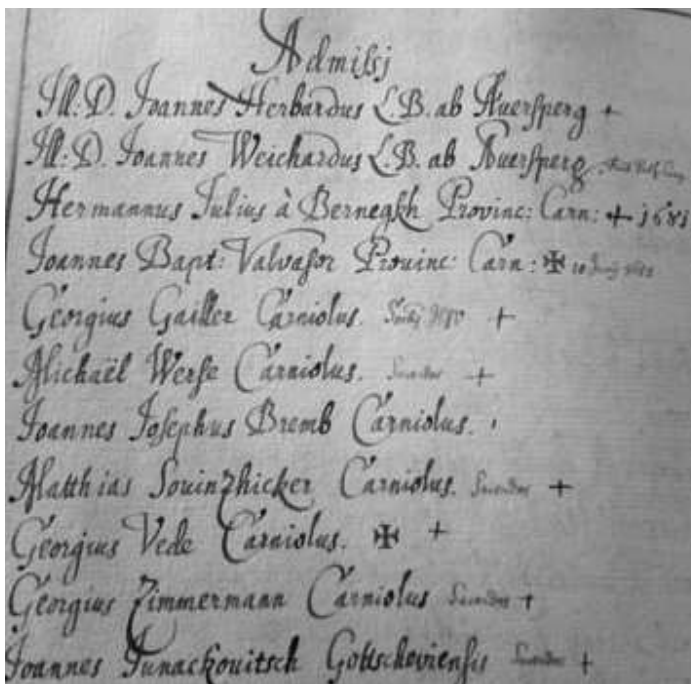 Admissj
Ill: D. Joannes Herbardus L.B. ab Auersperg +
Ill: D. Joannes Weichardus L.B. ab Auersperg
Hermannus Julius à Bernegkh Provinc: Carn: + 1681
Joannes Bapt: Valvasor Prouinc: Carn: ✠
Georgius Gailler Carniolus. +
Michaël Werse Carniolus. Sacerdos +
Joannes Josephus Bremb Carniolus.
Matthias Souinzhicker Carniolus. Sacerdos +
Georgius Vede Carniolus. ✠ +
Georgius Zimmermann Carniolus Sacerdos +
Joannes Junackouitsch Gottscheviensis Sacerdos +